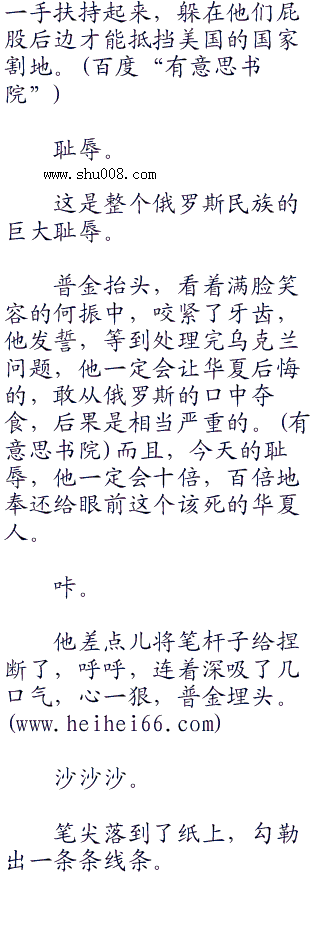 一手扶持起来，躲在他们屁
股后边才能抵挡美国的国家
割地。(百度“有意思书
院”)
耻辱。
www.shu008.com
这是整个俄罗斯民族的
巨大耻辱。
普金抬头，看着满脸笑
容的何振中，咬紧了牙齿，
他发誓，等到处理完乌克兰
问题，他一定会让华夏后悔
的，敢从俄罗斯的口中夺
食，后果是相当严重的。(有
意思书院)而且，今天的耻
辱，他一定会十倍，百倍地
奉还给眼前这个该死的华夏
人。
咔。
他差点儿将笔杆子给捏
断了，呼呼，连着深吸了几
口气，心一狠，普金埋头。
(www.heihei66.com)
沙沙沙。
笔尖落到了纸上，勾勒
出一条条线条。